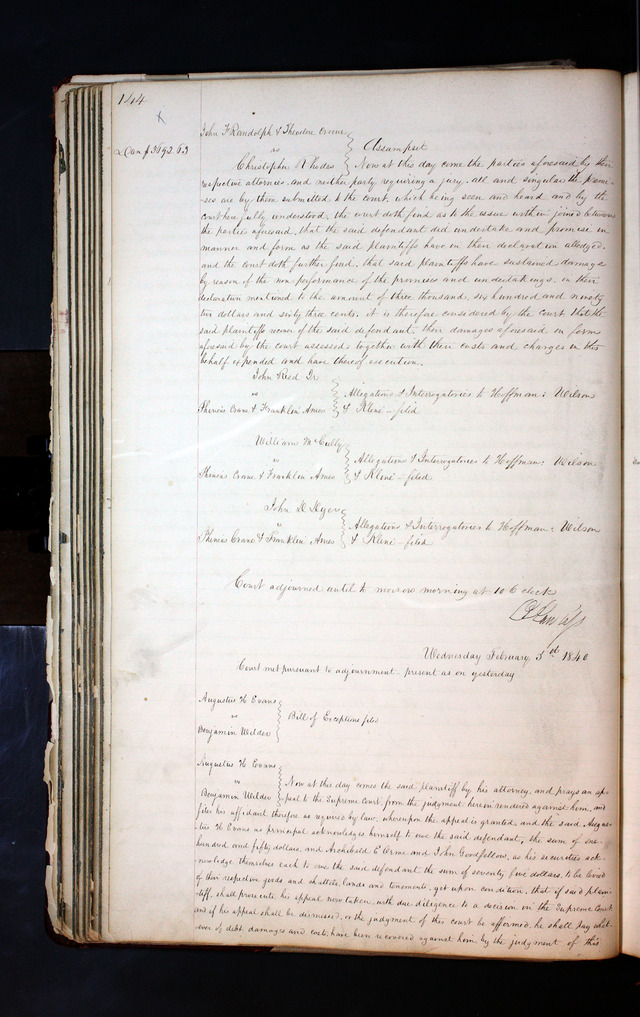 144
x
Dam $3692.63
John F Randolph & Theodore Greene
vs
Assumpsit
Christopher Rhodes
Now at this day come the parties aforesaid by their
respective attornies, and neither party requiring a jury, all and singular the premi-
-ses are by them submitted to the court, which being seen and heard and by the
court here fully understood, the court doth find as to the issue within joined between
the parties aforesaid, that the said defendant did undertake and promise in
manner and form as the said plaintiffs have in their declaration alledged.
and the court doth further find, that said plaintiffs have sustained damage
by reason of the non performance of the promises and undertakings, in their
declaration mentioned to the amount of three thousand, six hundred and ninety
two dollars and sixty three cents, it is therefore considered by the court that the
said plaintiffs recover of the said defendant, their damages aforesaid in form
aforesaid by the court assessed, together with their costs and charges in this
behalf expended and have thereof execution.
John Reed Jr
vs
Phineas Crane & Franklin Ames
Allegations & Interrogatories to Hoffman: Wilson
& Kline - filed
William McCully
vs
Phineas Crane & Franklin Ames
Allegations & Interrogatories to Hoffman: Wilson
& Kline - filed
John D
vs
Phineas Crane & Franklin Ames
Allegations & Interrogatories to Hoffman: Wilson
& Kline - filed
Court adjourned until to morrow morning at 10 O clock
Wednesday February, 5th 1840
Court met pursuant to adjournment. present as on yesterday
Augustus H Evans
vs
Bill of Exceptions filed
Benjamin Wilder
Augustus H Evans
vs
Now at this day comes the said plaintiff by his attorney, and prays an ap-
Benjamin Wilder
peal to the Supreme court, from the judgment herein rendered against him, and
files his affidavit therefor as required by law, whereupon the appeal is granted, and the said Augus-
tus H Evans as principal acknowledges himself to owe the said defendant, the sum of one
hundred and fifty dollars, and Archibald E Orme and John Goodfellow, as his securities ack-
nowledge themselves each to owe the said defendant the sum of seventy five dollars, to be levied
of their respective goods and chattels, lands and tenements, yet upon condition, that if said plain-
tiff, shall prosecute his appeal now taken, with due diligence to a decision in the Supreme Court
and if his appeal shall be dismissed, or the judgment of this court be affirmed, he shall pay what-
ever of debt damages and costs, have been recovered against him by the judgment of this